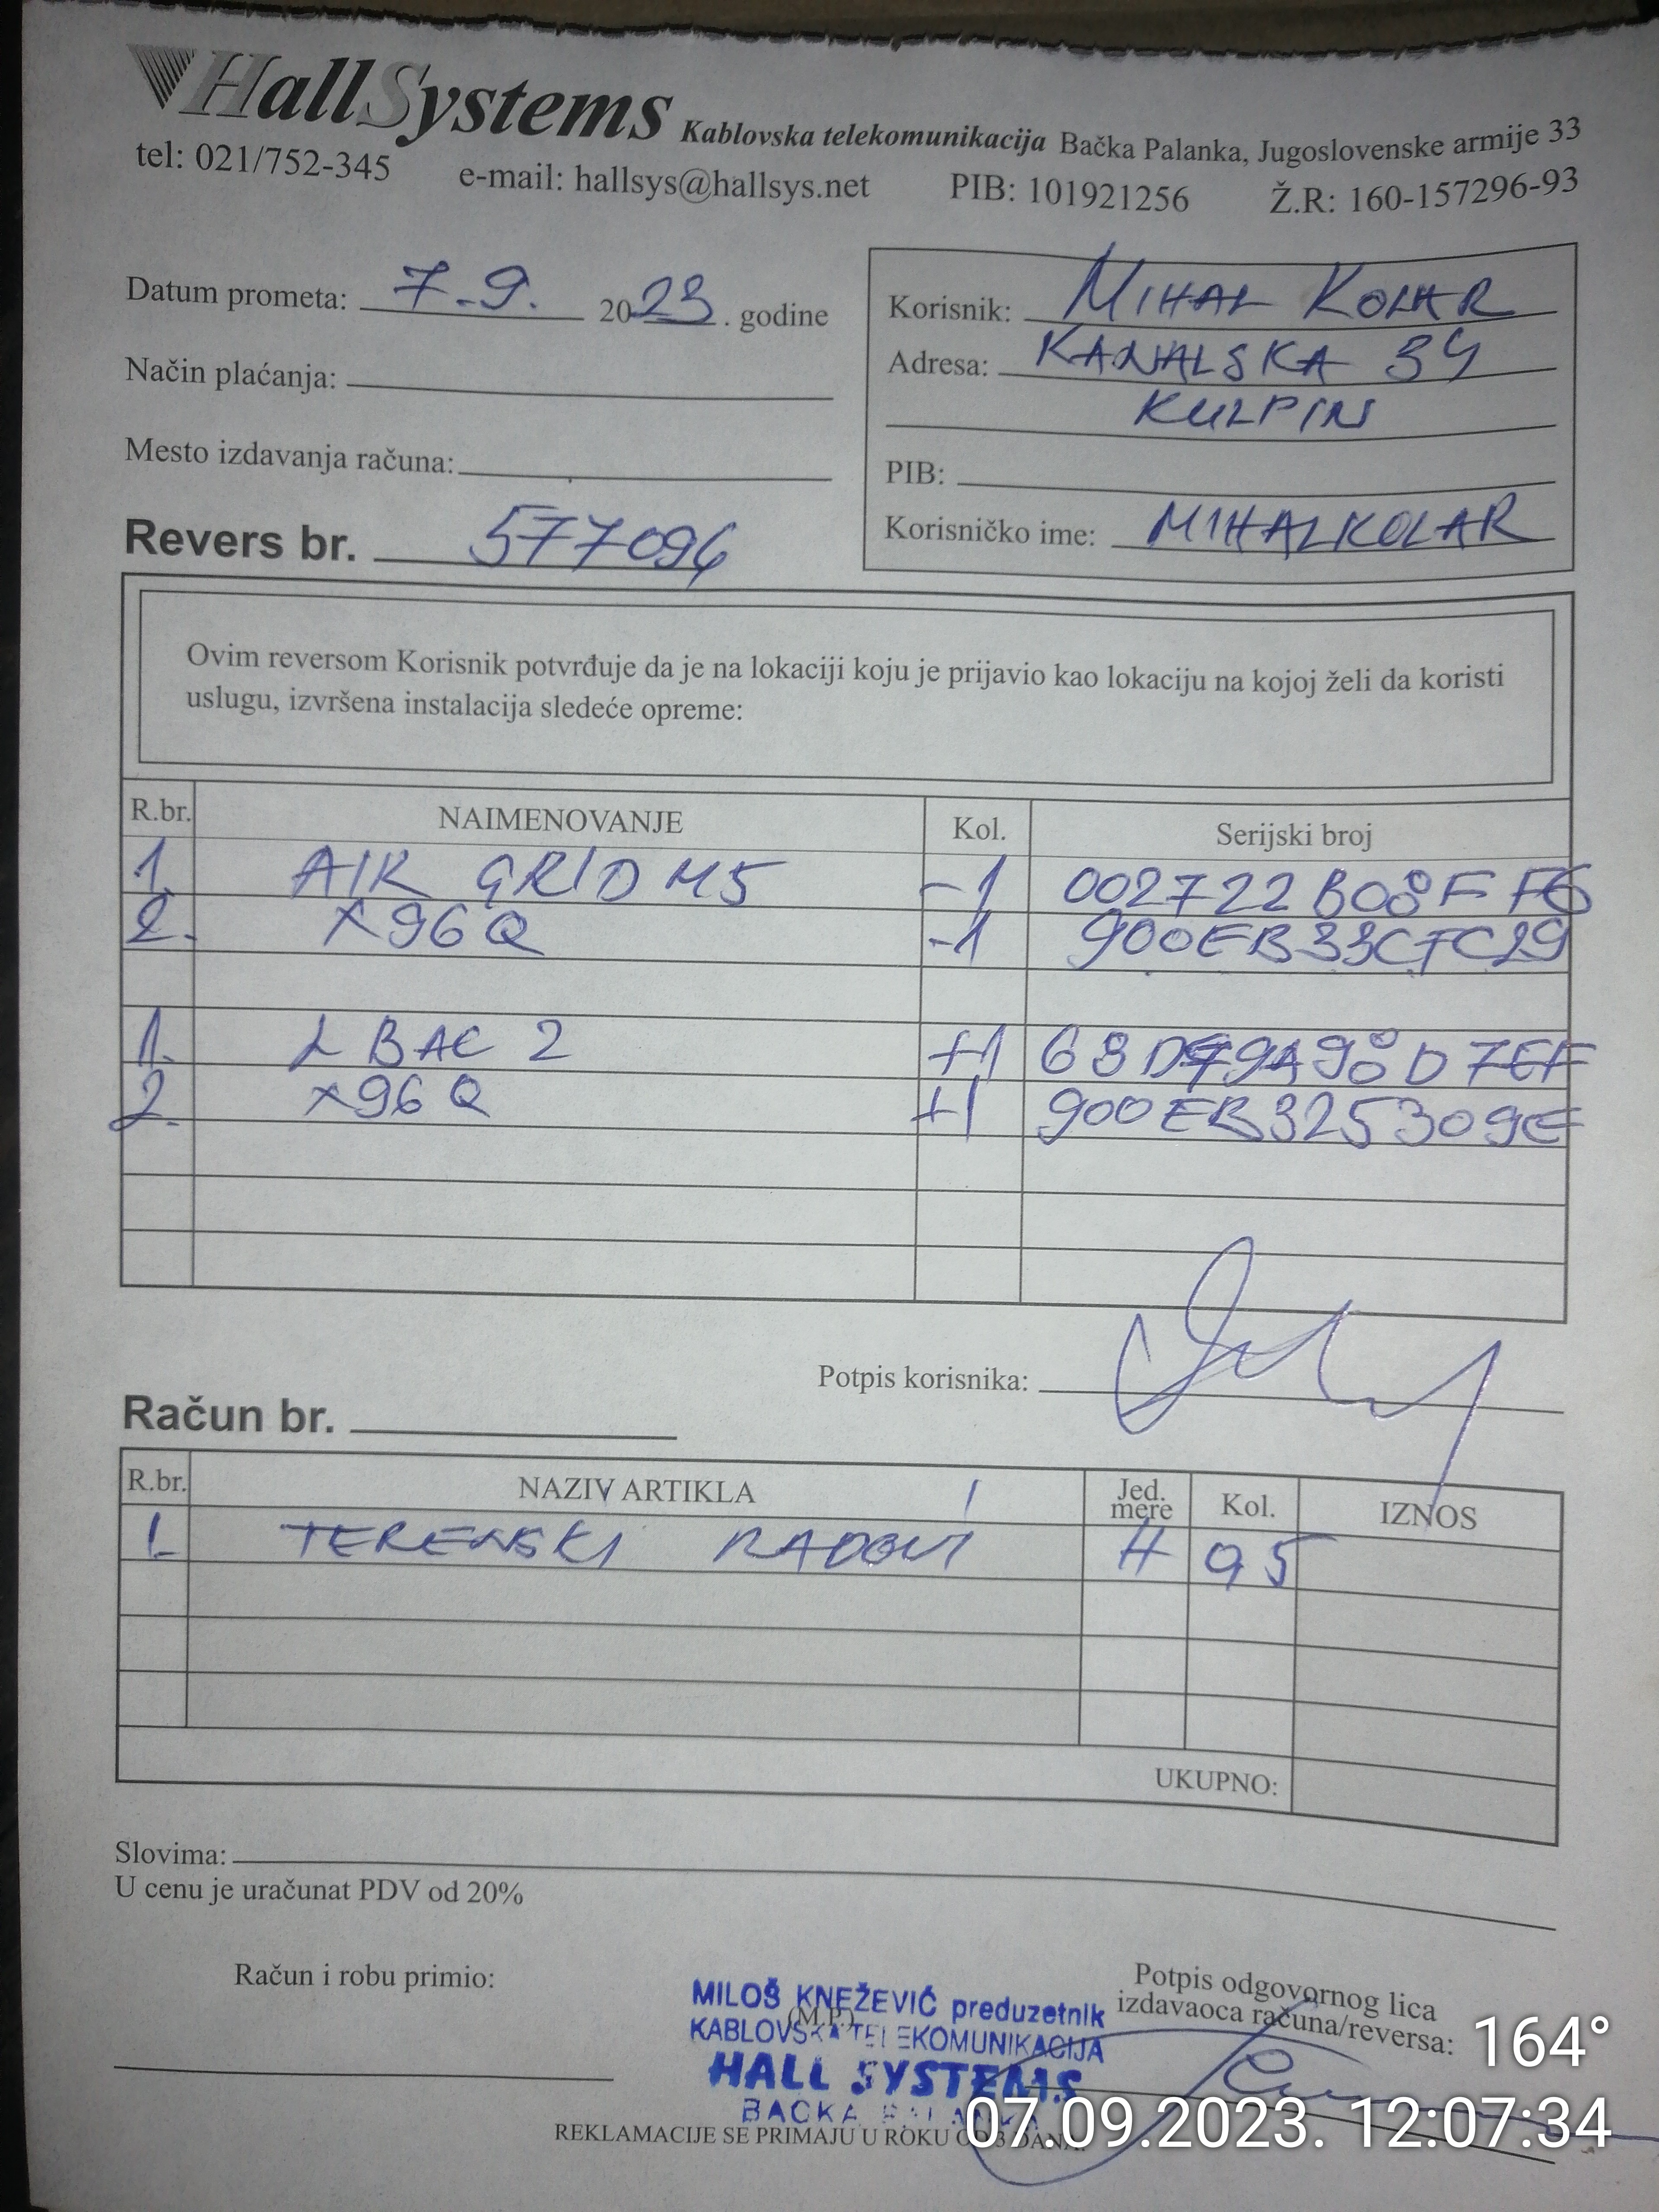 HallSystems Kablovska telekomunikacija Bačka Palanka, Jugoslovenske armije 33
tel: 021/752-345 e-mail: hallsys@hallsys.net PIB: 101921256 Ž.R: 160-157296-93
Datum prometa: 7.9. 2023. godine
Način plaćanja:
Mesto izdavanja računa:
Revers br. 577096
Korisnik: MIHAL KOLAR
Adresa: KANALSKA 34
KULPIN
PIB:
Korisničko ime: MIHALKOLAR
Ovim reversom Korisnik potvrđuje da je na lokaciji koju je prijavio kao lokaciju na kojoj želi da koristi
uslugu, izvršena instalacija sledeće opreme:
R.br. NAIMENOVANJE Kol. Serijski broj
1. AIR GRID M5 -1 002722B08FF6
2. X96Q -1 900EB33CFC29
1. LBAC 2 +1
2. X96Q +1 900EB325309E
Potpis korisnika:
Račun br.
R.br. NAZIV ARTIKLA Jed. mere Kol. IZNOS
1. TERENSKI RADOVI H 0,5
UKUPNO:
Slovima:
U cenu je uračunat PDV od 20%
Račun i robu primio:
(M.P.)
MILOŠ KNEŽEVIĆ preduzetnik
KABLOVSKA TELEKOMUNIKACIJA
HALL SYSTEMS
BAČKA PALANKA
Potpis odgovornog lica
izdavaoca računa/reversa:
REKLAMACIJE SE PRIMAJU U ROKU OD 3 DANA.
164°
07.09.2023. 12:07:34